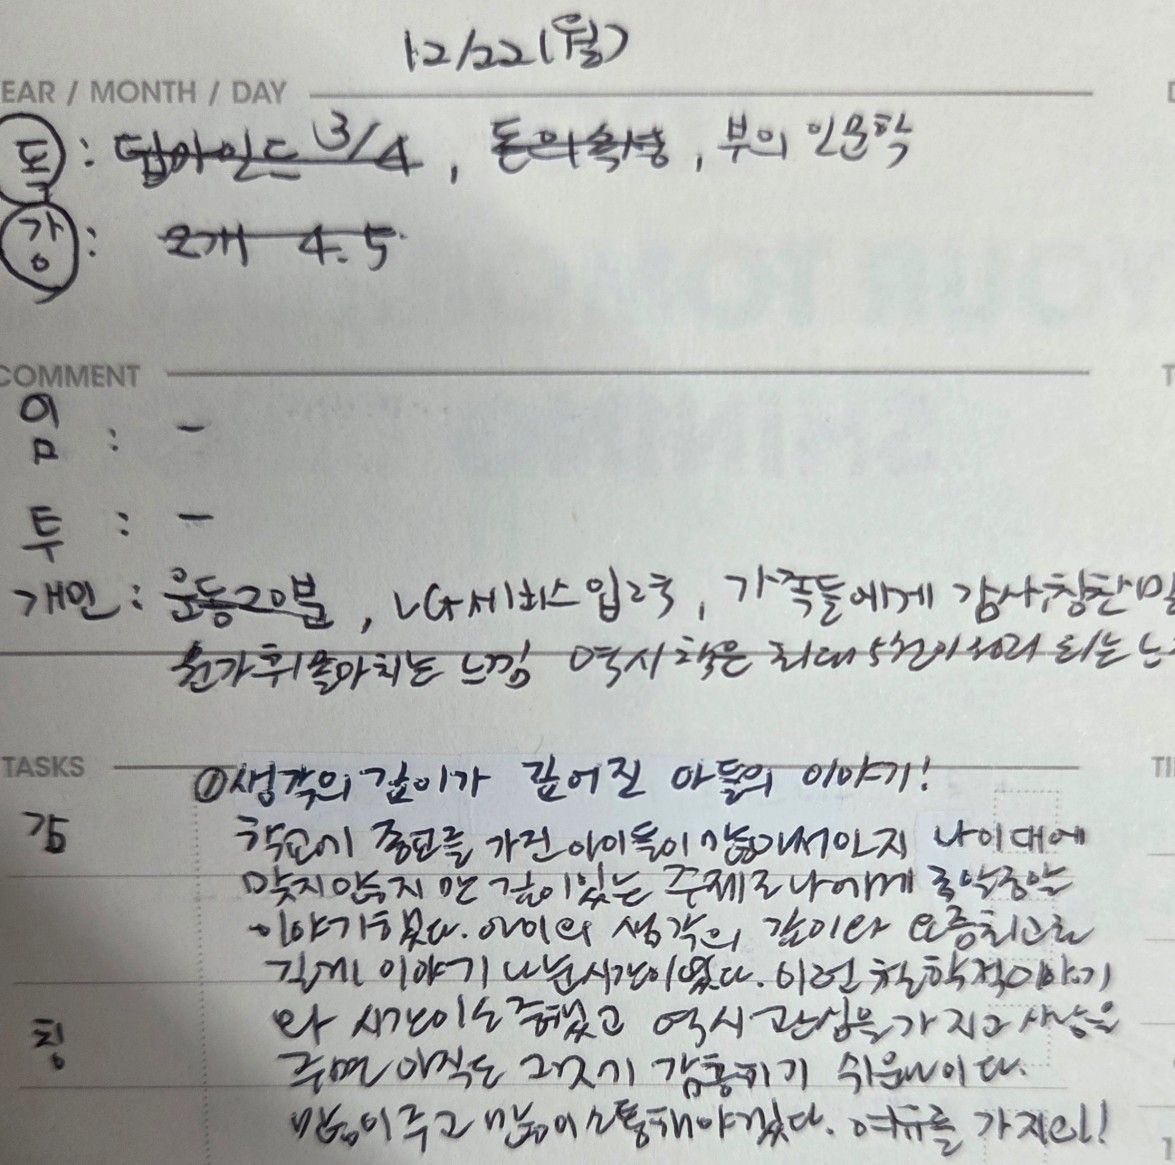 12/22(월)
EAR / MONTH / DAY
독 : 딥마인드 3/4, 돈의속성, 부의 인문학
강 : 2개 4.5
COMMENT
임 : -
투 : -
개인 : 운동20분, LG서비스입고, 가족들에게 감사,칭찬
뭔가 휘몰아치는 느낌 역시 책은 최대
TASKS
①생각의 깊이가 깊어진 아들의 이야기!
감 학교에 종교를 가진 아이들이 많아서인지 나이대에
맞지않는지 깊이있는 주제로 나에게 조악조악
이야기했다. 아이의 생각의 깊이와 요즘최고로
길게 이야기 나눈시간이었다. 이런 철학적이야기
칭 와 시간이 소중했고 역시 관심을 가지고 사랑을
주면 아직도 감흥하기 쉬운나이다.
많이주고 많이소통해야겠다. 여유를 가지리!